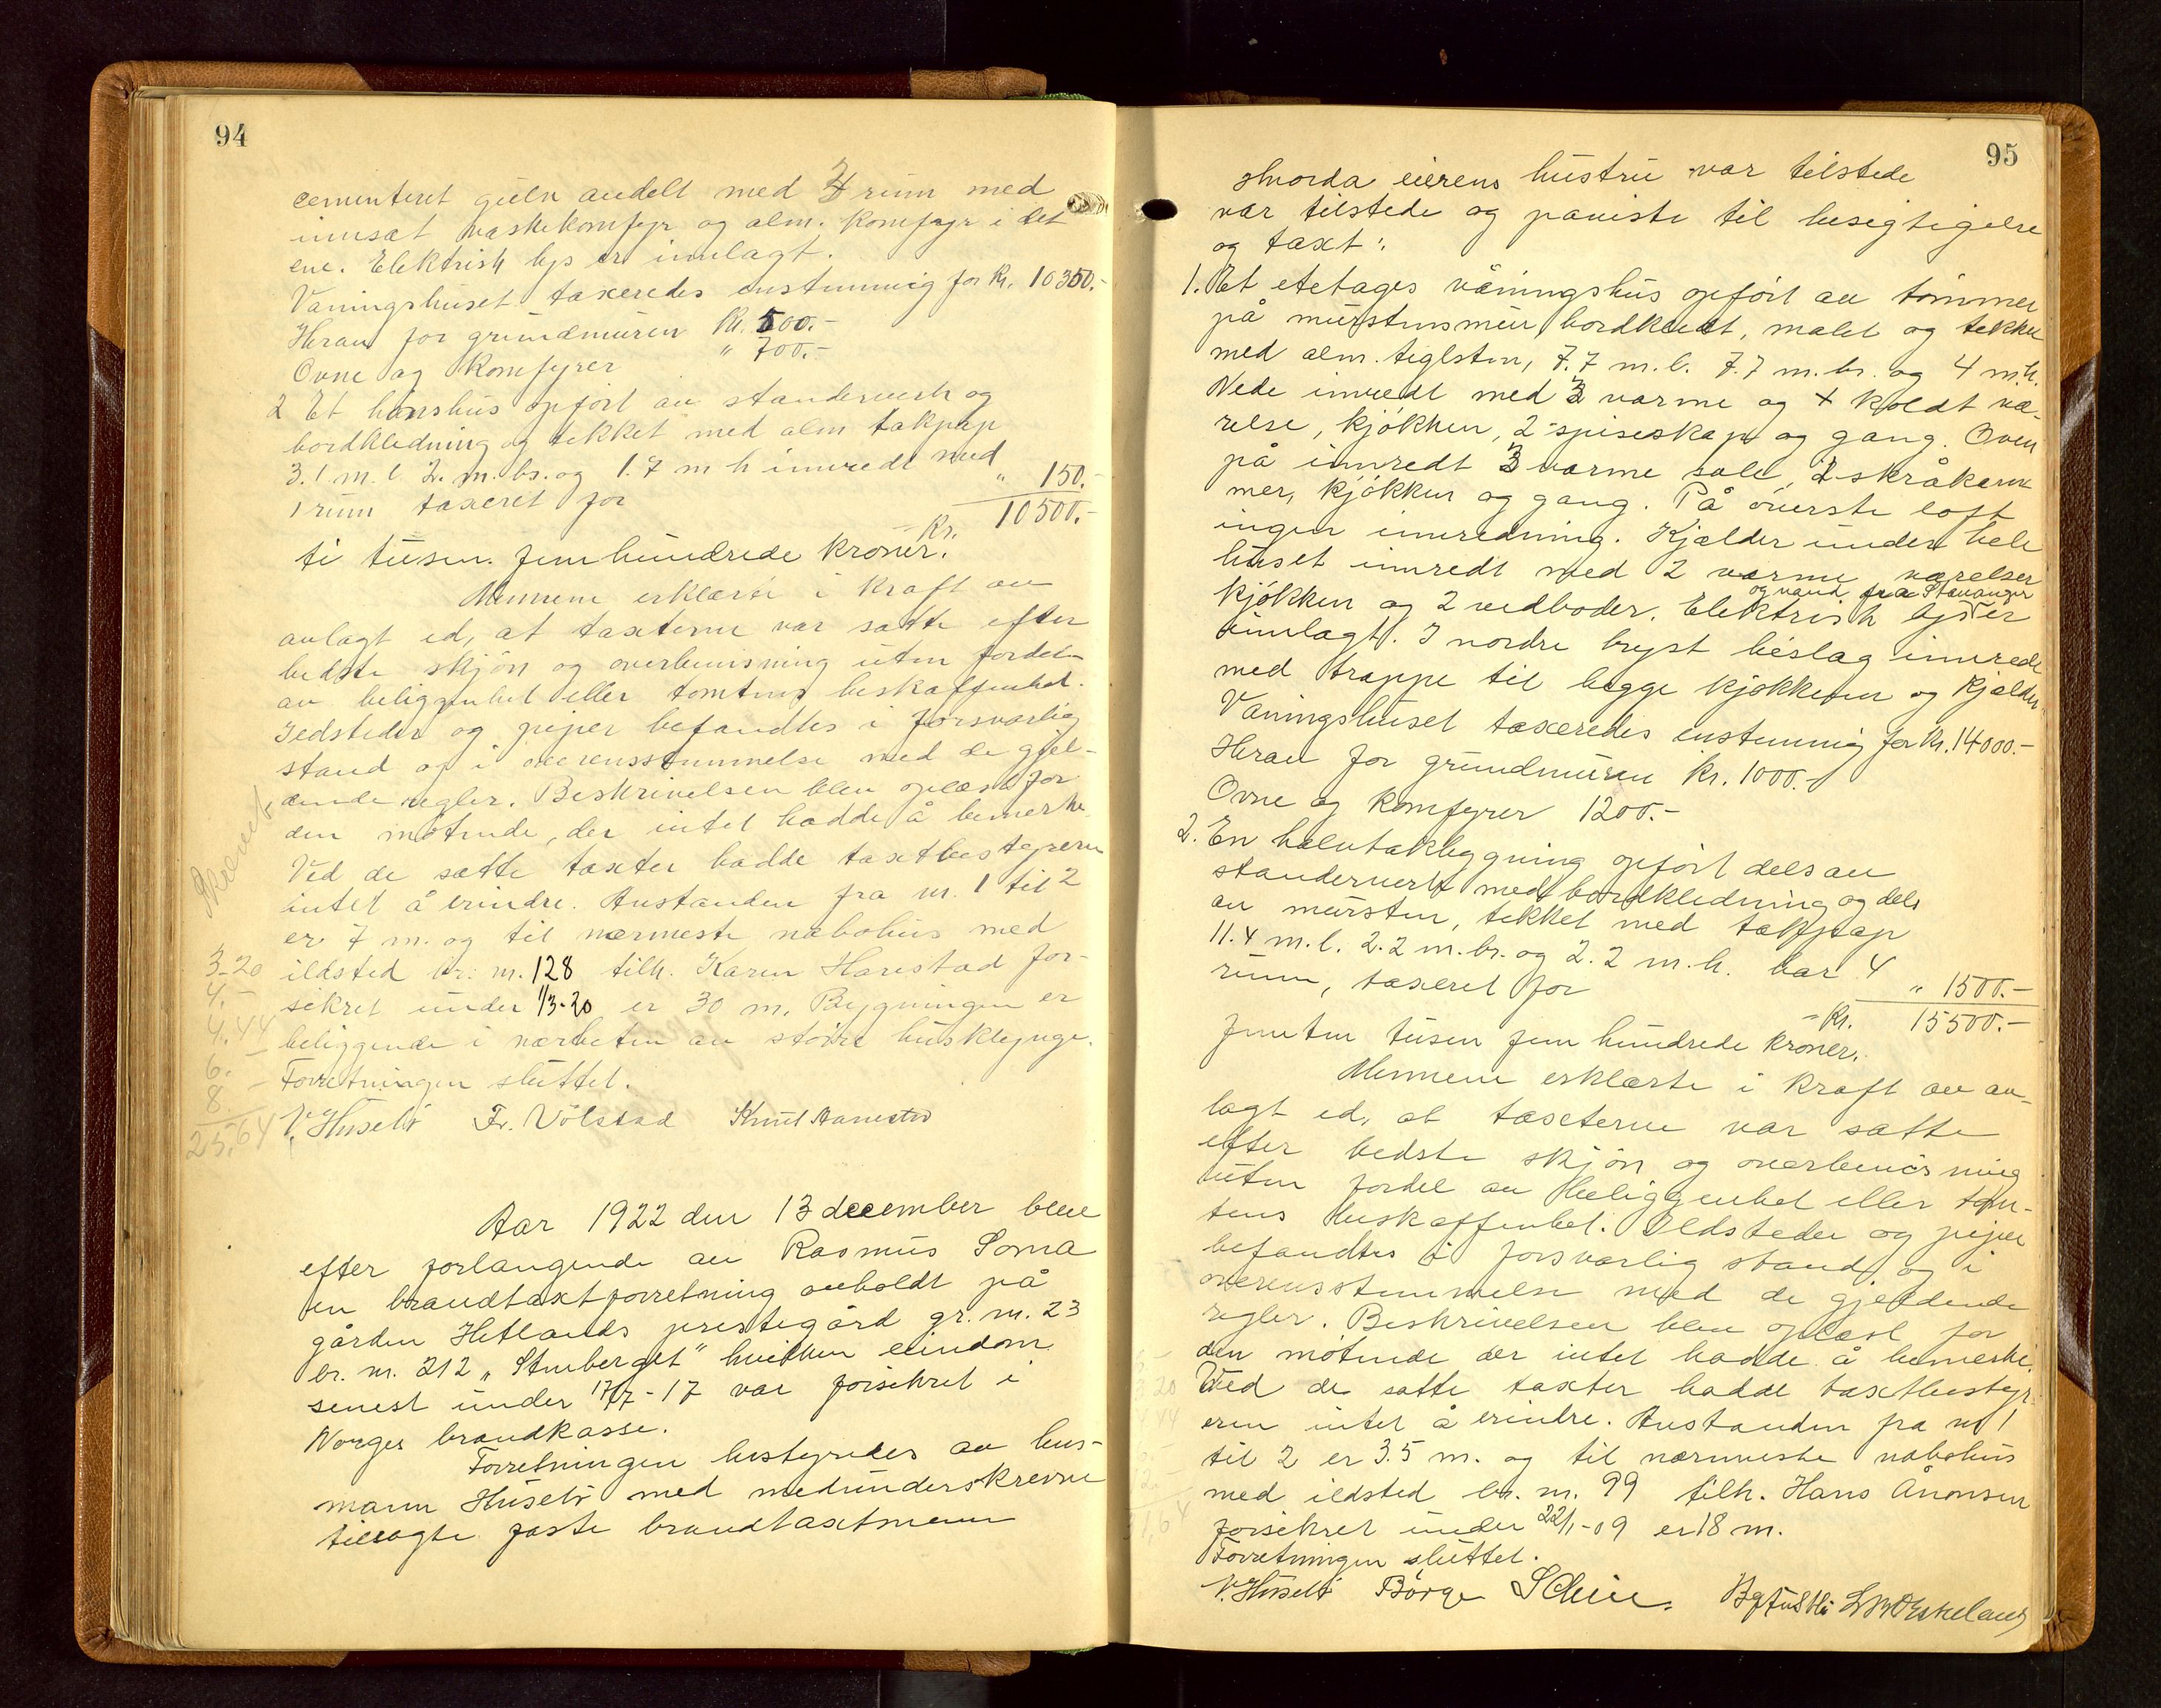 94
cementeret gulv avdelt med 4 rum med
innsat vaskekomfyr og alm. komfyr i det
ene. Elektrisk lys er innlagt.
Vaningshuset taxeredes enstemmig for kr. 10350.-
Herav for grundmuren kr. 500.-
Ovne og komfyrer " 700.-
2 Et hønshus opført av standerverk og
bordkledning og tekket med alm takpap
3.1 m. l 2. m. br. og 1.7 m h innredt med
1 rum taxeret for " 150.-
Kr. 10500.-
ti tusen femhundrede kroner.
Mennene erklærte i kraft av
avlagt ed, at taxterne var satte efter
bedste skjøn og overbevisning uten fordel
av beliggenhet eller tomtens beskaffenhet.
Ildsteder og piper befandtes i forsvarlig
stand og i overensstemmelse med de gjel-
dende regler. Beskrivelsen blev oplæst for
den møtende, der intet hadde å bemerke.
Ved de satte taxter hadde taxtbestyreren
intet å erindre. Avstanden fra nr. 1 til 2
er 7 m. og til nærmeste nabohus med
ildsted br. nr. 128 tilh. Karen Harestad for-
sikret under 1/3-20 er 30 m. Bygningen er
beliggende i nærheten av større husklynge.
Forretningen sluttet.
V. Husebø Fr. Vølstad Knut Harestad
Skrevet
3.20
4.-
4.44
6.-
8.-
25.64
Aar 1922 den 13 december blev
efter forlangende av Rasmus Soma
en brandtaxtforretning avholdt på
gården Hetlands prestegård gr. nr. 23
br. nr. 212 "Stenberget" hvilken eiendom
senest under 17/7-17 var forsikret i
Norges brandkasse.
Forretningen bestyredes av lens-
mann Husebø med medunderskrevne
tilsagte faste brandtaxtmenn
95
hvorda eierens hustru var tilstede
var tilstede og paviste til besigtigelse
og taxt:
1. Et etetages våningshus opført av tømmer
på murstensmur bordkledt, malet og tekket
med alm. teglsten, 7.7 m. l. 7.7 m. br. og 4 m. h.
Nede innredt med 3 varme og + koldt væ-
relse, kjøkken, 2 spiseskap og gang. Oven
på innredt 3 varme sale, 2 skråkam
mer, kjøkken og gang. På øverste loft
ingen innredning. Kjælder under hele
huset innredt med 2 varme værelser
kjøkken og 2 vedboder. Elektrisk lys er
og vand fra Stavanger
innlagt. I nordre bryst beslag innredt
med trappe til begge kjøkkener og kjælder.
Vaningshuset taxeredes enstemmig for kr. 14000.-
Herav for grundmuren kr. 1000.-
Ovne og komfyrer 1200.-
2. En halvtakbygning opført dels av
standerverk med bordkledning og dels
av mursten, tekket med takpap
11.4 m. l. 2.2 m. br. og 2.2 m. h. har 4
rum, taxeret for " 1500.-
Kr. 15500.-
femten tusen fem hundrede kroner.
Mennene erklærte i kraft av av-
lagt ed, at taxterne var satte
efter bedste skjøn og overbevisning
uten fordel av beliggenhet eller tom-
tens beskaffenhet. Ildsteder og piper
befandtes i forsvarlig stand og i
overensstemmelse med de gjeldende
regler. Beskrivelsen blev oplæst for
den møtende der intet hadde å bemerke.
Ved de satte taxter hadde taxtbestyr-
eren intet å erindre. Avstanden fra nr 1
til 2 er 3.5 m. og til nærmeste nabohus
med ildsted br. nr. 99 tilh. Hans Ånonsen
forsikret under 22/1-09 er 18 m.
Forretningen sluttet.
V. Husebø Børge Schie.